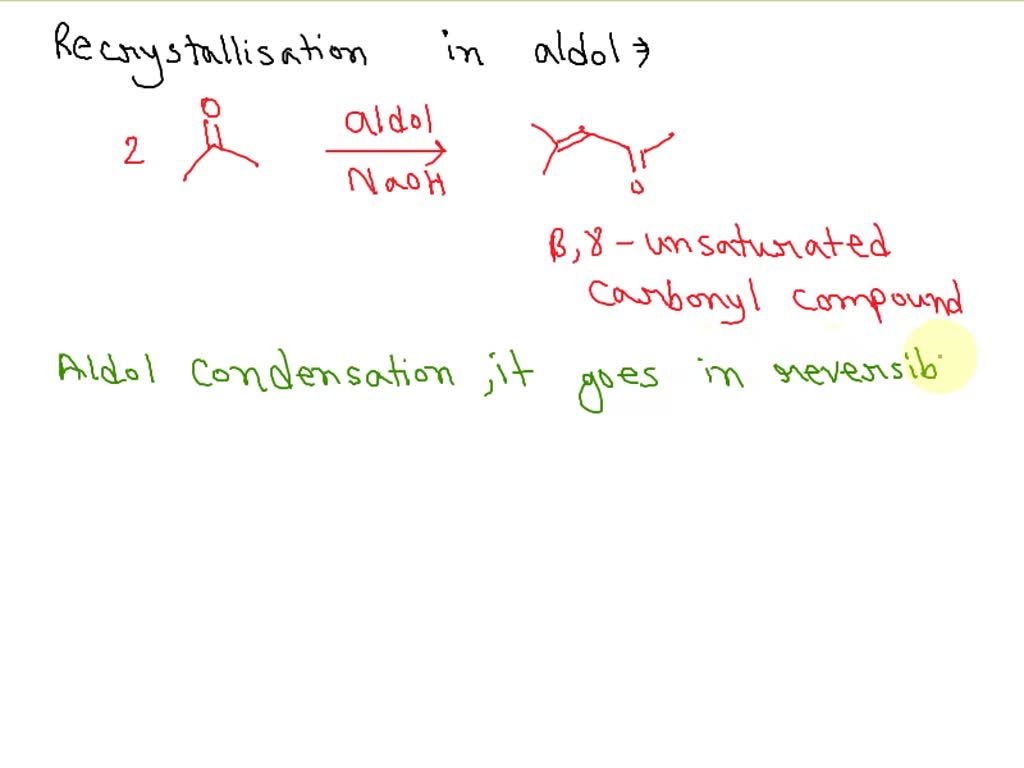 Recrystallisation in aldol ⇒
O
2 aldol
NaOH
O
β,γ-unsaturated
carbonyl compound
Aldol condensation, it goes in reversib